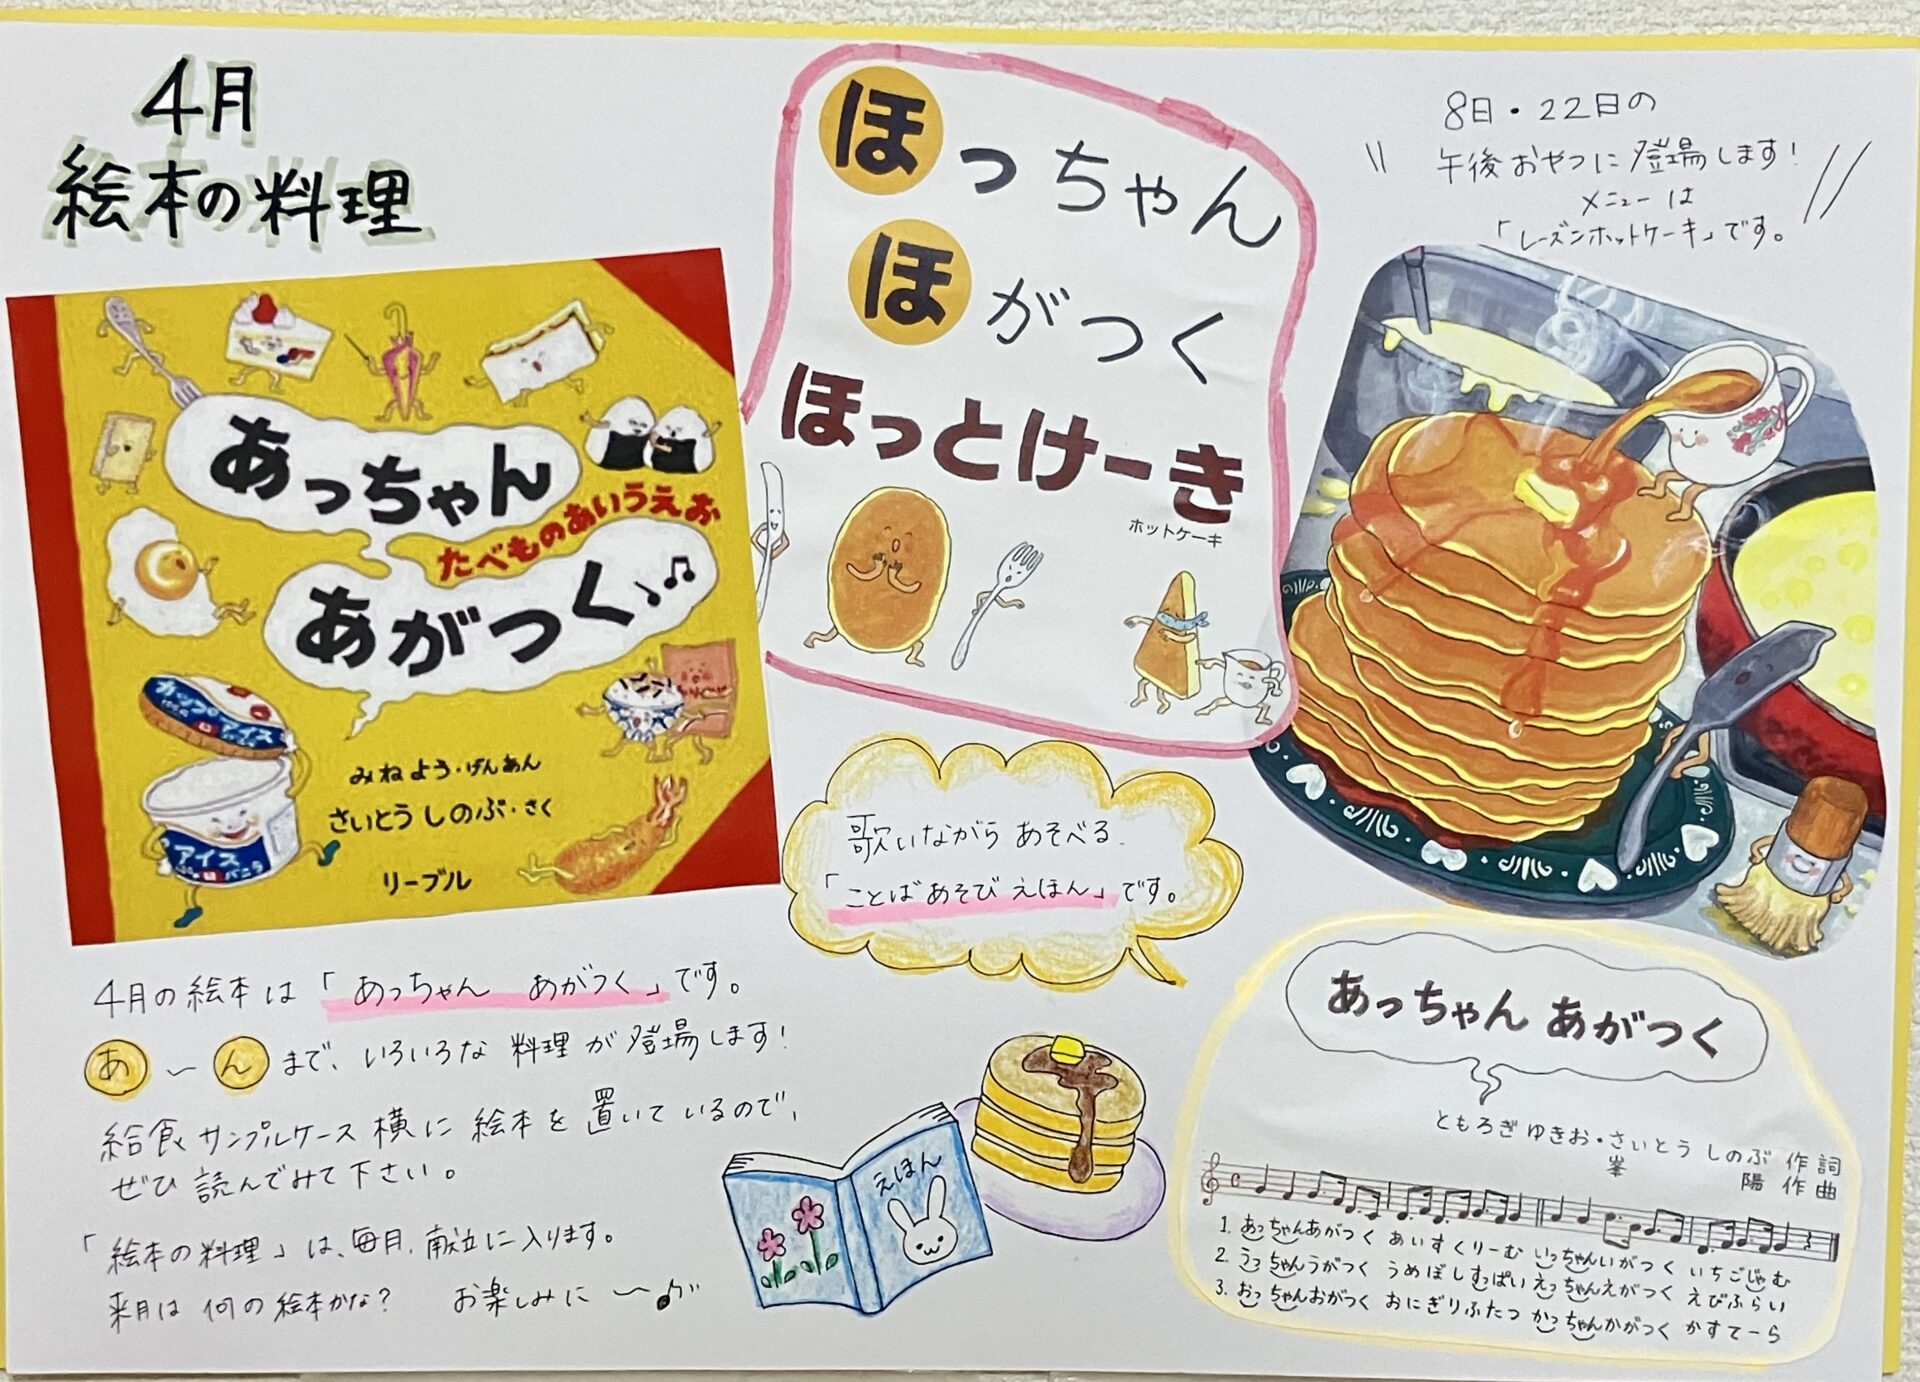 4月
絵本の料理
あっちゃん
たべものあいうえお
あがつく
カップのアイス
アイス
バニラ
みねよう・げんあん
さいとう しのぶ・さく
リーブル
ほっちゃん
ほがつく
ほっとけーき
ホットケーキ
8日・22日の
午後おやつに登場します!
メニューは
「レーズンホットケーキ」です。
歌いながら あそべる
「ことばあそび えほん」です。
4月の絵本は「あっちゃん あがつく」です。
あ〜んまで、いろいろな料理が登場します!
給食サンプルケース横に絵本を置いているので、
ぜひ読んでみて下さい。
「絵本の料理」は、毎月、献立に入ります。
来月は何の絵本かな? お楽しみに〜♪
えほん
あっちゃん あがつく
ともろぎ ゆきお・さいとう しのぶ 作詞
峯 陽 作曲
1. あっちゃんあがつく あいすくりーむ いっちゃんいがつく いちごじゃむ
2. うっちゃんうがつく うめぼしすっぱい えっちゃんえがつく えびふらい
3. おっちゃんおがつく おにぎりふたつ かっちゃんかがつく かすてーら